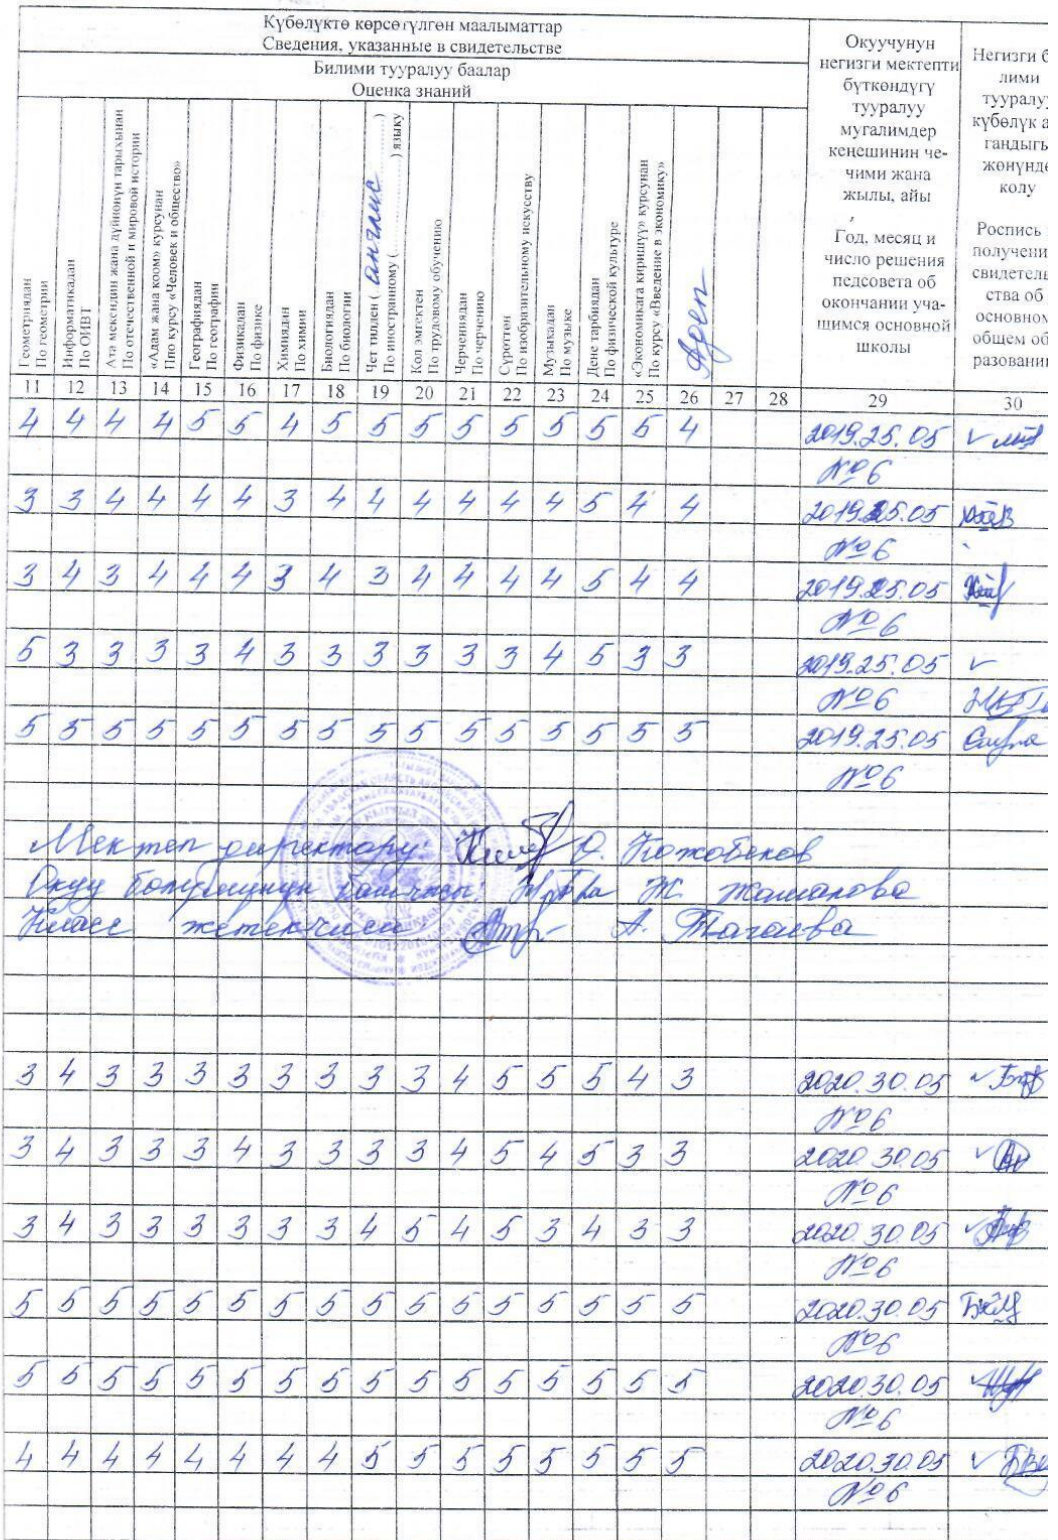 Күбөлүктө көрсөтүлгөн маалыматтар
Сведения, указанные в свидетельстве
Билими тууралуу баалар
Оценка знаний
Геометриядан
По геометрии
Информатикадан
По ОИВТ
Ата мекендин жана дүйнөнүн тарыхынан
По отечественной и мировой истории
«Адам жана коом» курсунан
Ппо курсу «Человек и общество»
Географиядан
По географии
Физикадан
По физике
Химиядан
По химии
Биологиядан
По биологии
Чет тилден ( англис )
По иностранному ( ) языку
Кол эмгектен
По трудовому обучению
Черчениядан
По черчению
Сүрөттөн
По изобразительному искусству
Музыкадан
По музыке
Дене тарбиядан
По физической культуре
«Экономикага киришүү» курсунан
По курсу «Введение в экономику»
Адеп
Окуучунун
негизги мектепти
бүткөндүгү
тууралуу
мугалимдер
кеңешинин че-
чими жана
жылы, айы
Год, месяц и
число решения
педсовета об
окончании уча-
щимся основной
школы
Негизги б
лими
тууралуу
күбөлүк а
гандыгы
жөнүндө
колу
Роспись
получени
свидетель
ства об
основном
общем об
разовании
11 12 13 14 15 16 17 18 19 20 21 22 23 24 25 26 27 28 29 30
4 4 4 4 5 5 4 5 5 5 5 5 5 5 5 4 2019.25.05
№6
3 3 4 4 4 4 3 4 4 4 4 4 4 5 4 4 2019.25.05
№6
3 4 3 4 4 4 3 4 3 4 4 4 4 5 4 4 2019.25.05
№6
5 3 3 3 3 4 3 3 3 3 3 3 4 5 3 3 2019.25.05
№6
5 5 5 5 5 5 5 5 5 5 5 5 5 5 5 5 2019.25.05
№6
Мектеп директору: О. Кожобеков
Окуу бөлүмүнүн башчысы: Ж. Жамалова
Класс жетекчиси А. Тагаева
3 4 3 3 3 3 3 3 3 3 4 5 5 5 4 3 2020.30.05
№6
3 4 3 3 3 4 3 3 3 3 4 5 4 5 3 3 2020.30.05
№6
3 4 3 3 3 3 3 3 4 5 4 5 3 4 3 3 2020.30.05
№6
5 5 5 5 5 5 5 5 5 5 5 5 5 5 5 5 2020.30.05
№6
5 5 5 5 5 5 5 5 5 5 5 5 5 5 5 5 2020.30.05
№6
4 4 4 4 4 4 4 4 5 5 5 5 5 5 5 5 2020.30.05
№6